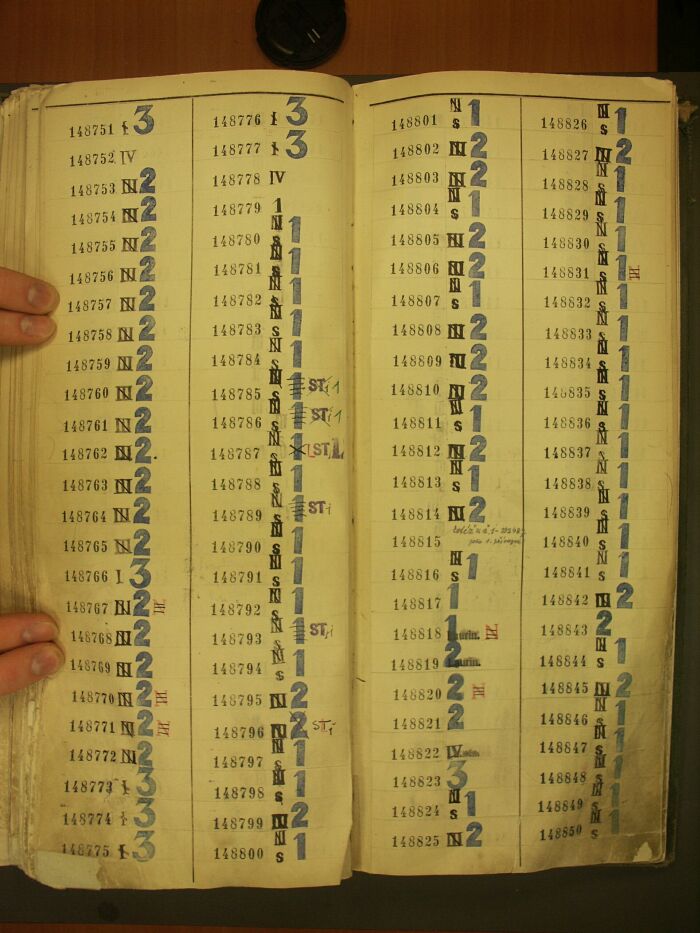 148751 I 3
148752 IV
148753 N 2
148754 N 2
148755 N 2
148756 N 2
148757 N 2
148758 N 2
148759 N 2
148760 N 2
148761 N 2
148762 N 2.
148763 N 2
148764 N 2
148765 N 2
148766 I 3
148767 N 2
148768 N 2
148769 N 2
148770 N 2
148771 N 2
148772 N 2
148773 I 3
148774 I 3
148775 I 3
148776 I 3
148777 I 3
148778 IV
148779 1
148780 N s 1
148781 N s 1
148782 N s 1
148783 N s 1
148784 N s 1
148785 N s 1 ST. 1
148786 N s 1 ST. 1
148787 N s 1 ST. 1
148788 N s 1
148789 N s 1 ST.
148790 N s 1
148791 N s 1
148792 N s 1
148793 N s 1 ST.
148794 N s 1
148795 N 2
148796 N 2 ST.
148797 N s 1
148798 N s 1
148799 N 2
148800 N s 1
148801 N s 1
148802 N 2
148803 N 2
148804 N s 1
148805 N 2
148806 N 2
148807 N s 1
148808 N 2
148809 N 2
148810 N 2
148811 N s 1
148812 N 2
148813 N s 1
148814 N 2
148815
148816 N s 1
148817 1
148818 1 Laurin.
148819 2 Laurin.
148820 2
148821 2
148822 IV
148823 3
148824 N s 1
148825 N 2
148826 N s 1
148827 N 2
148828 N s 1
148829 N s 1
148830 N s 1
148831 N s 1
148832 N s 1
148833 N s 1
148834 N s 1
148835 N s 1
148836 N s 1
148837 N s 1
148838 N s 1
148839 N s 1
148840 N s 1
148841 N s 1
148842 N 2
148843 2
148844 N s 1
148845 N 2
148846 N s 1
148847 N s 1
148848 N s 1
148849 N s 1
148850 N s 1